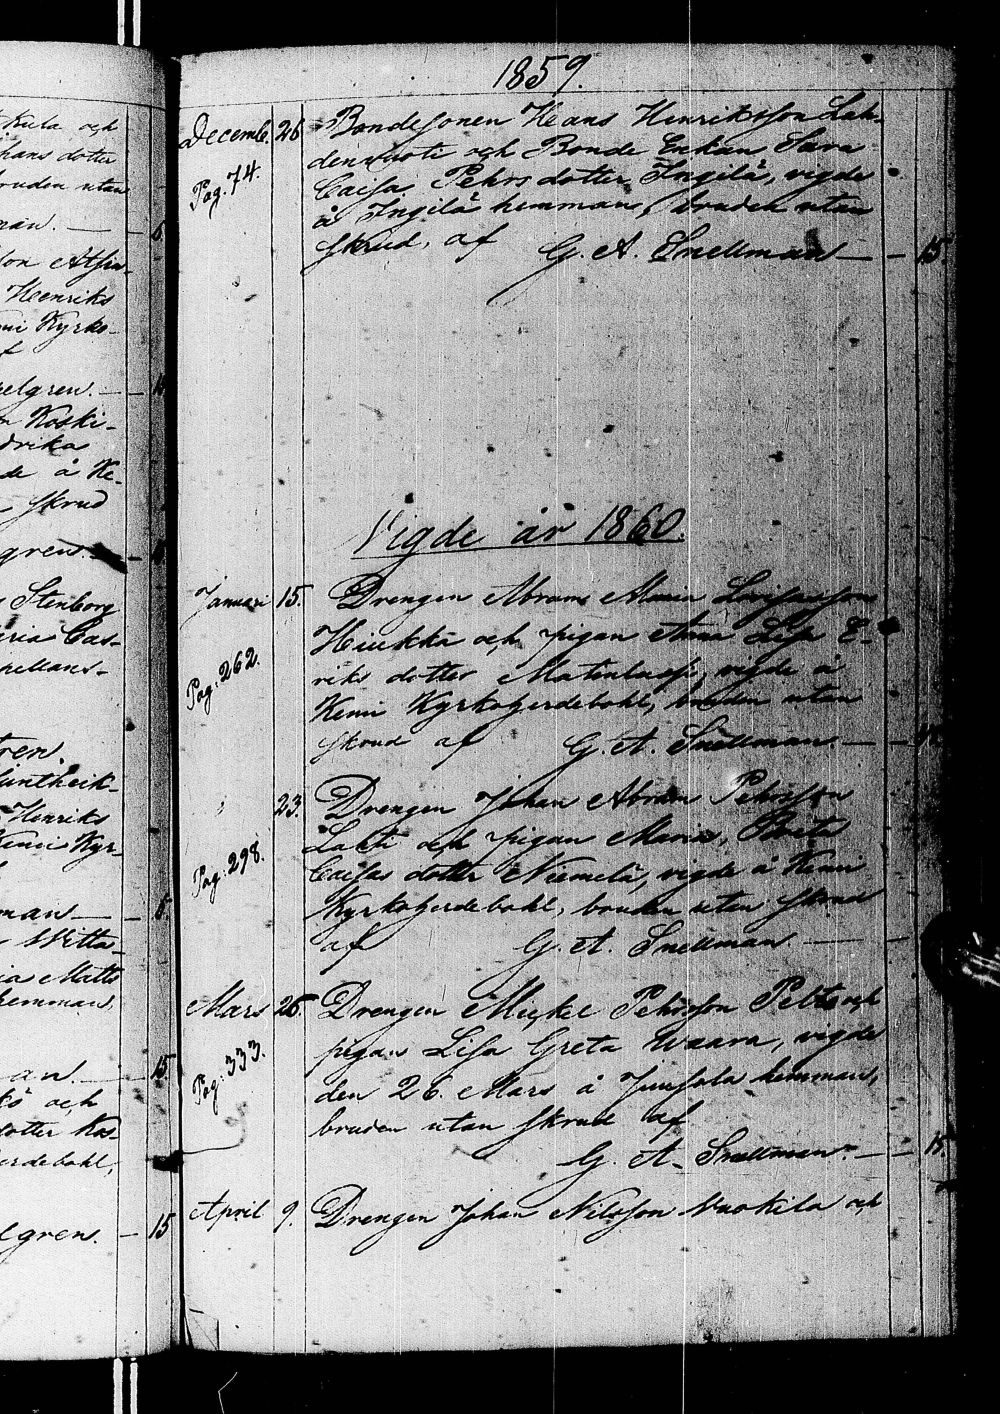 kula och
hans dotter
bruden utan
man. — 6
son
Henriks
mi Kyrko-
f
elgren. —
Koski-
drika
de å Ke-
skrud
gren.
Stenborg
ria Cas-
pellans-
ren.
Henriks
Kemi Kyr-
man — 6
Witta
ia Matts
hemman,
an. — 15
kö och
dotter Kos-
erdebohl,
lgren. — 15
1859.
Decemb. 26. Bondesonen Hans Henriksson Lah-
Pag. 74. denluoti och Bonde Enkan Sara
Caisa Pehrs dotter Ingilä, vigde
å Ingilä hemman, bruden utan
skrud, af G. A. Snellman — 15.
Vigde år 1860.
Januari 15. Drengen Abram
Hiukka och pigan Anna Lisa E-
Pag: 262. riks dotter vigde å
Kemi Kyrkoherdebohl, bruden utan
skrud af G. A. Snellman. —
23. Drengen Johan Abram Pehrsson
Lahti och pigan Maria, Brita
Pag: 298. Caisas dotter Niemelä, vigde å Kemi
Kyrkoherdebohl, bruden utan skrud
af G. A. Snellman —
Mars 26. Drengen Mickel Pehrsson Pelto och
Pag: 333. pigan Lisa Greta Waara, vigde
den 26. Mars å hemman,
bruden utan skrud af
G. A. Snellman. — 15.
April 9. Drengen Johan Nilsson Wuokila och